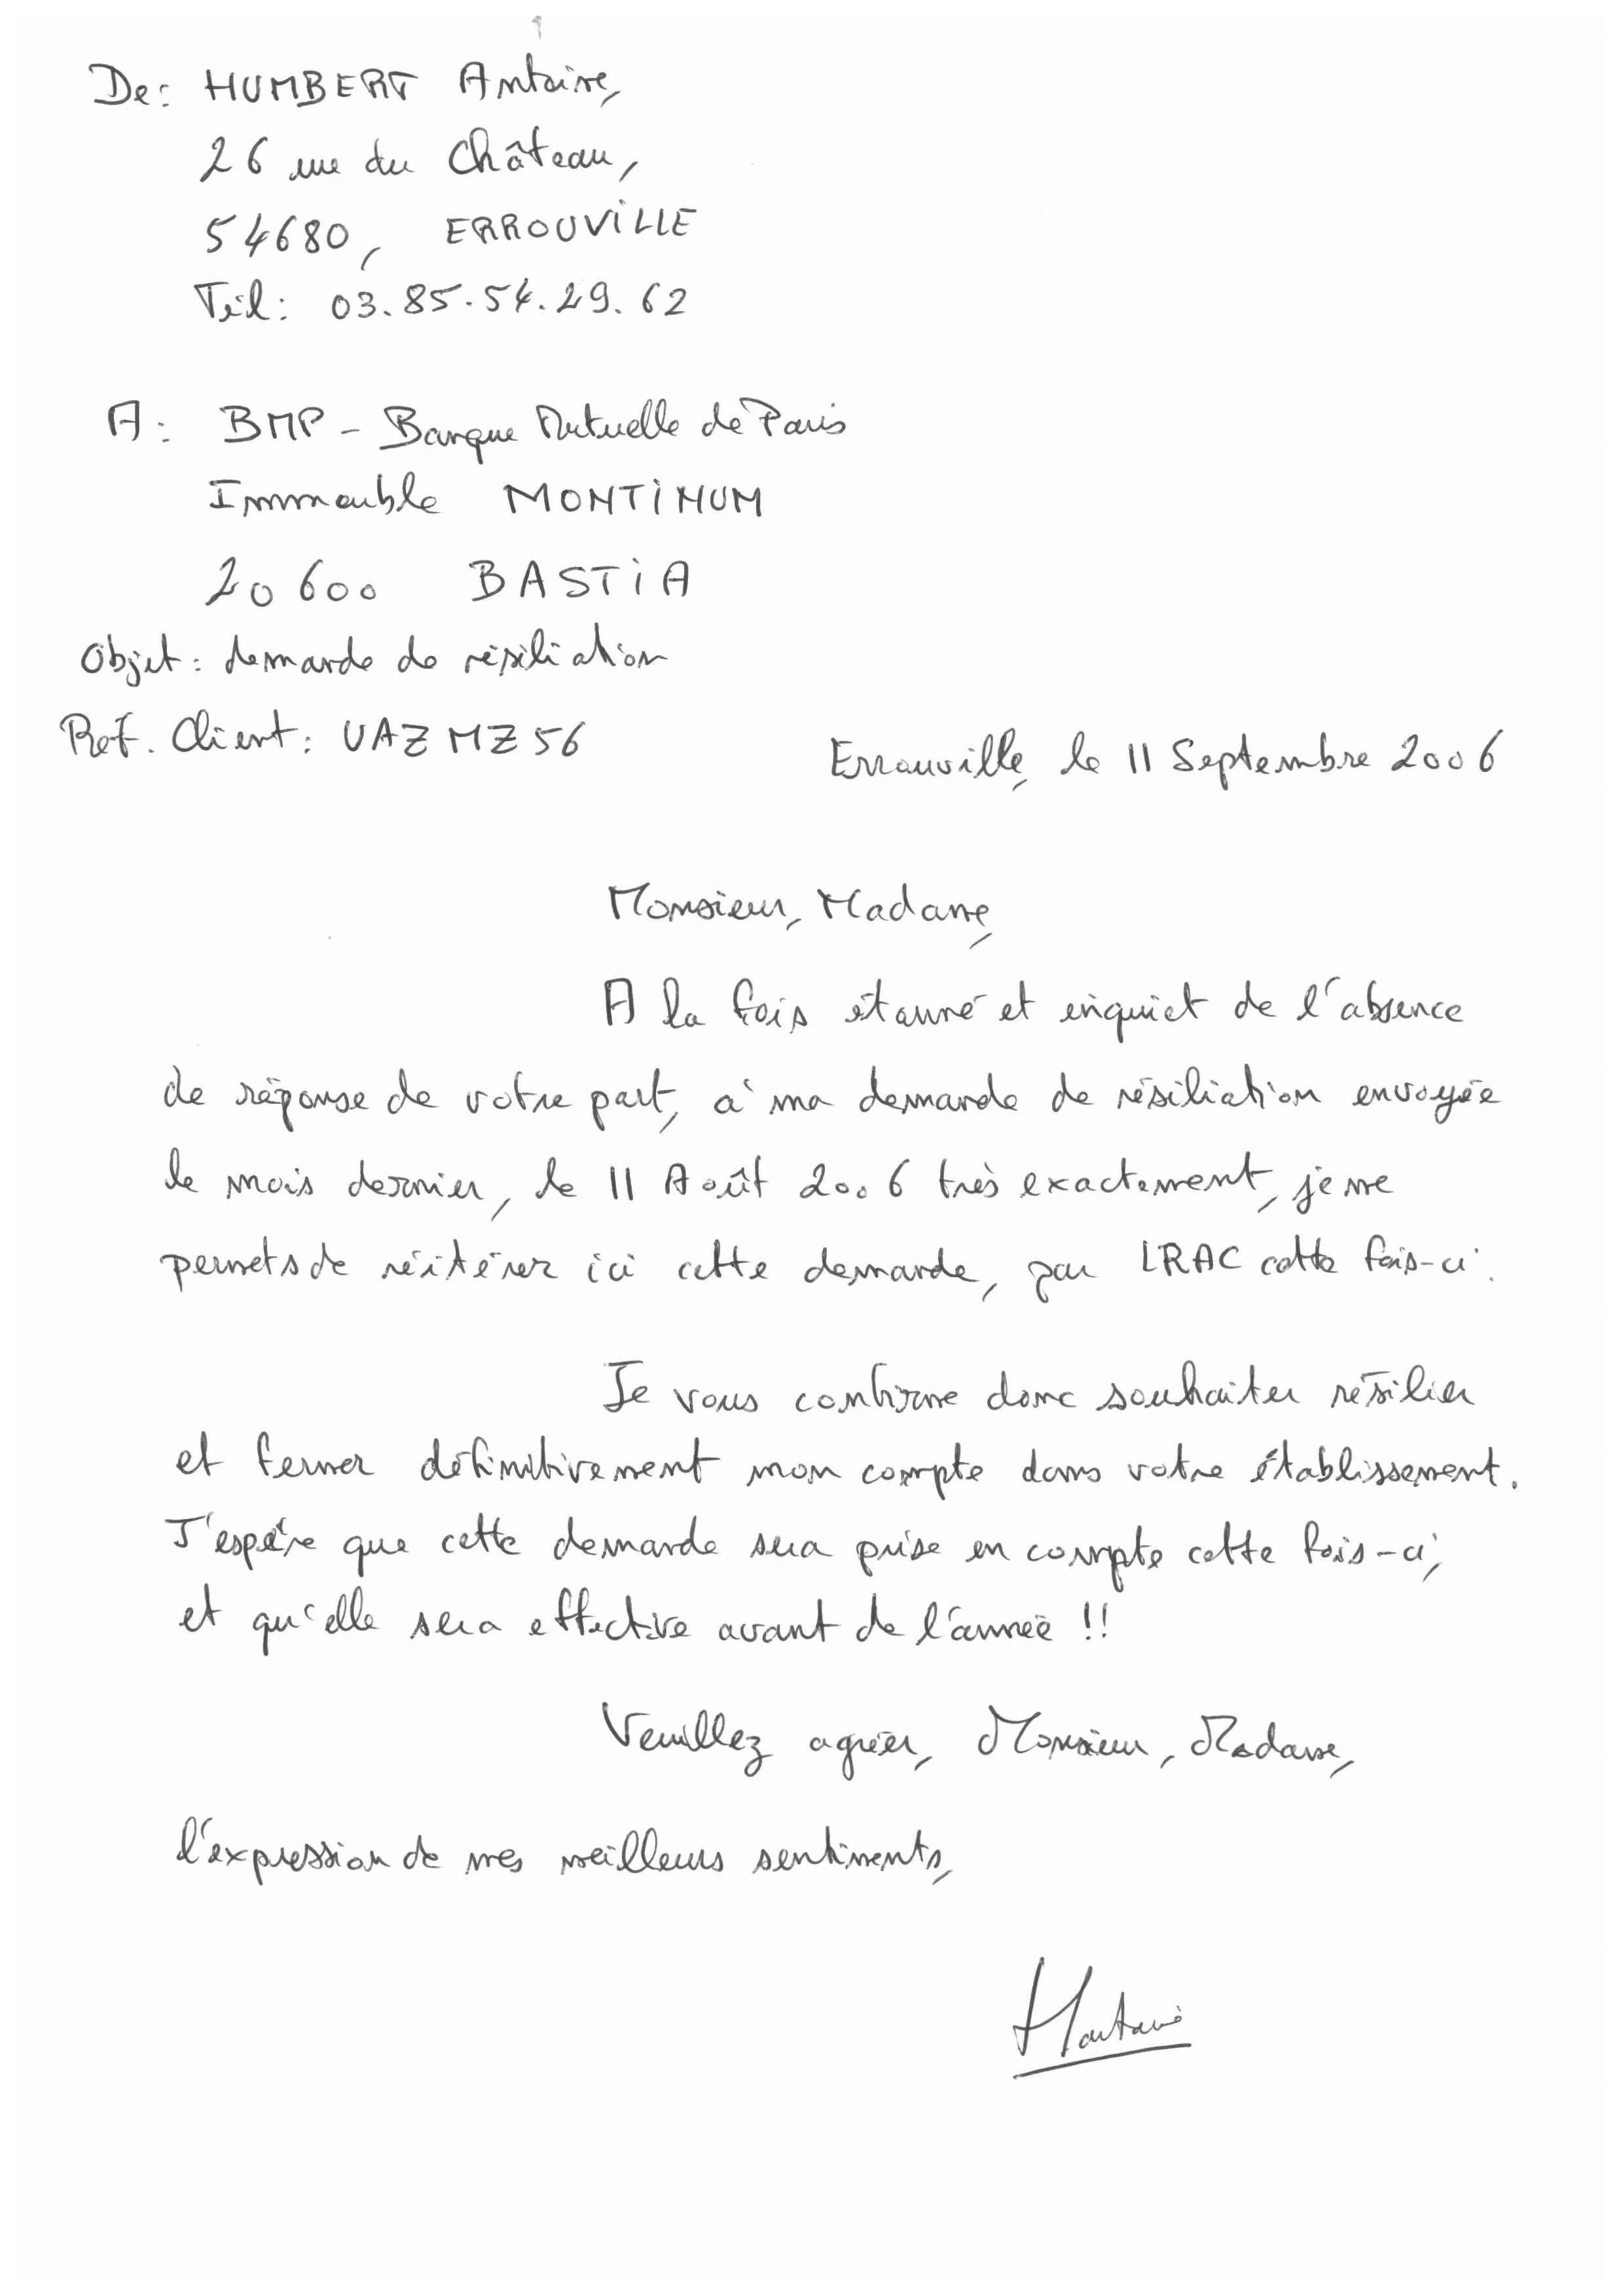 De: HUMBERT Antoine,
26 rue du Château,
54680, ERROUVILLE
Tél: 03.85.54.29.62
A: BMP - Banque Mutuelle de Paris
Immeuble MONTINUM
20600 BASTIA
Objet: demande de résiliation
Ref. Client: UAZMZ56
Errouville, le 11 Septembre 2006
Monsieur, Madame,
A la fois étonné et inquiet de l'absence
de réponse de votre part, à ma demande de résiliation envoyée
le mois dernier, le 11 Août 2006 très exactement, je me
permets de réitérer ici cette demande, par LRAC cette fois-ci.
Je vous confirme donc souhaiter résilier
et fermer définitivement mon compte dans votre établissement.
J'espère que cette demande sera prise en compte cette fois-ci,
et qu'elle sera effective avant de l'année !!
Veuillez agréer, Monsieur, Madame,
l'expression de mes meilleurs sentiments,